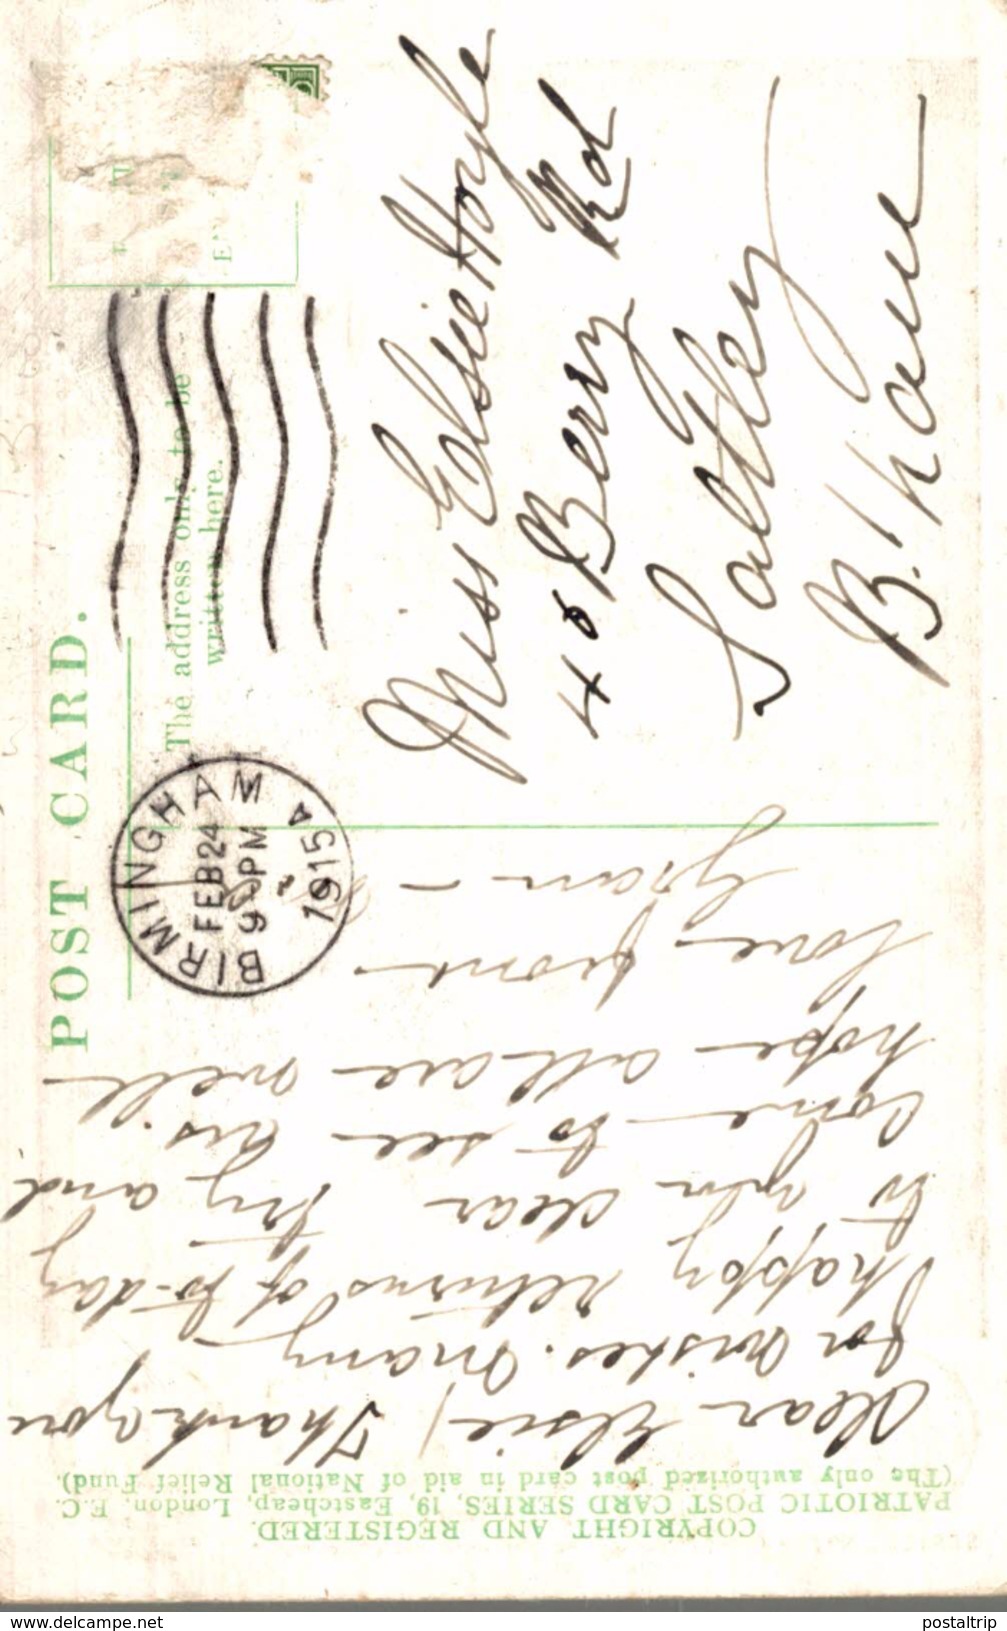 POST CARD.
The address only to be
written here.
BIRMINGHAM
FEB 24
9 PM
1915
Miss Elsie Hoyle
48 Berry Rd
Saltley
B.ham
COPYRIGHT AND REGISTERED.
PATRIOTIC POST CARD SERIES, 19, Eastcheap, London, E.C.
(The only authorized post card in aid of National Relief Fund).
Dear Elsie, Thank you
for wishes. Many
happy returns of to-day
to you dear try and
come to see us
hope all are well
love from
Gran
www.delcampe.net
postaltrip